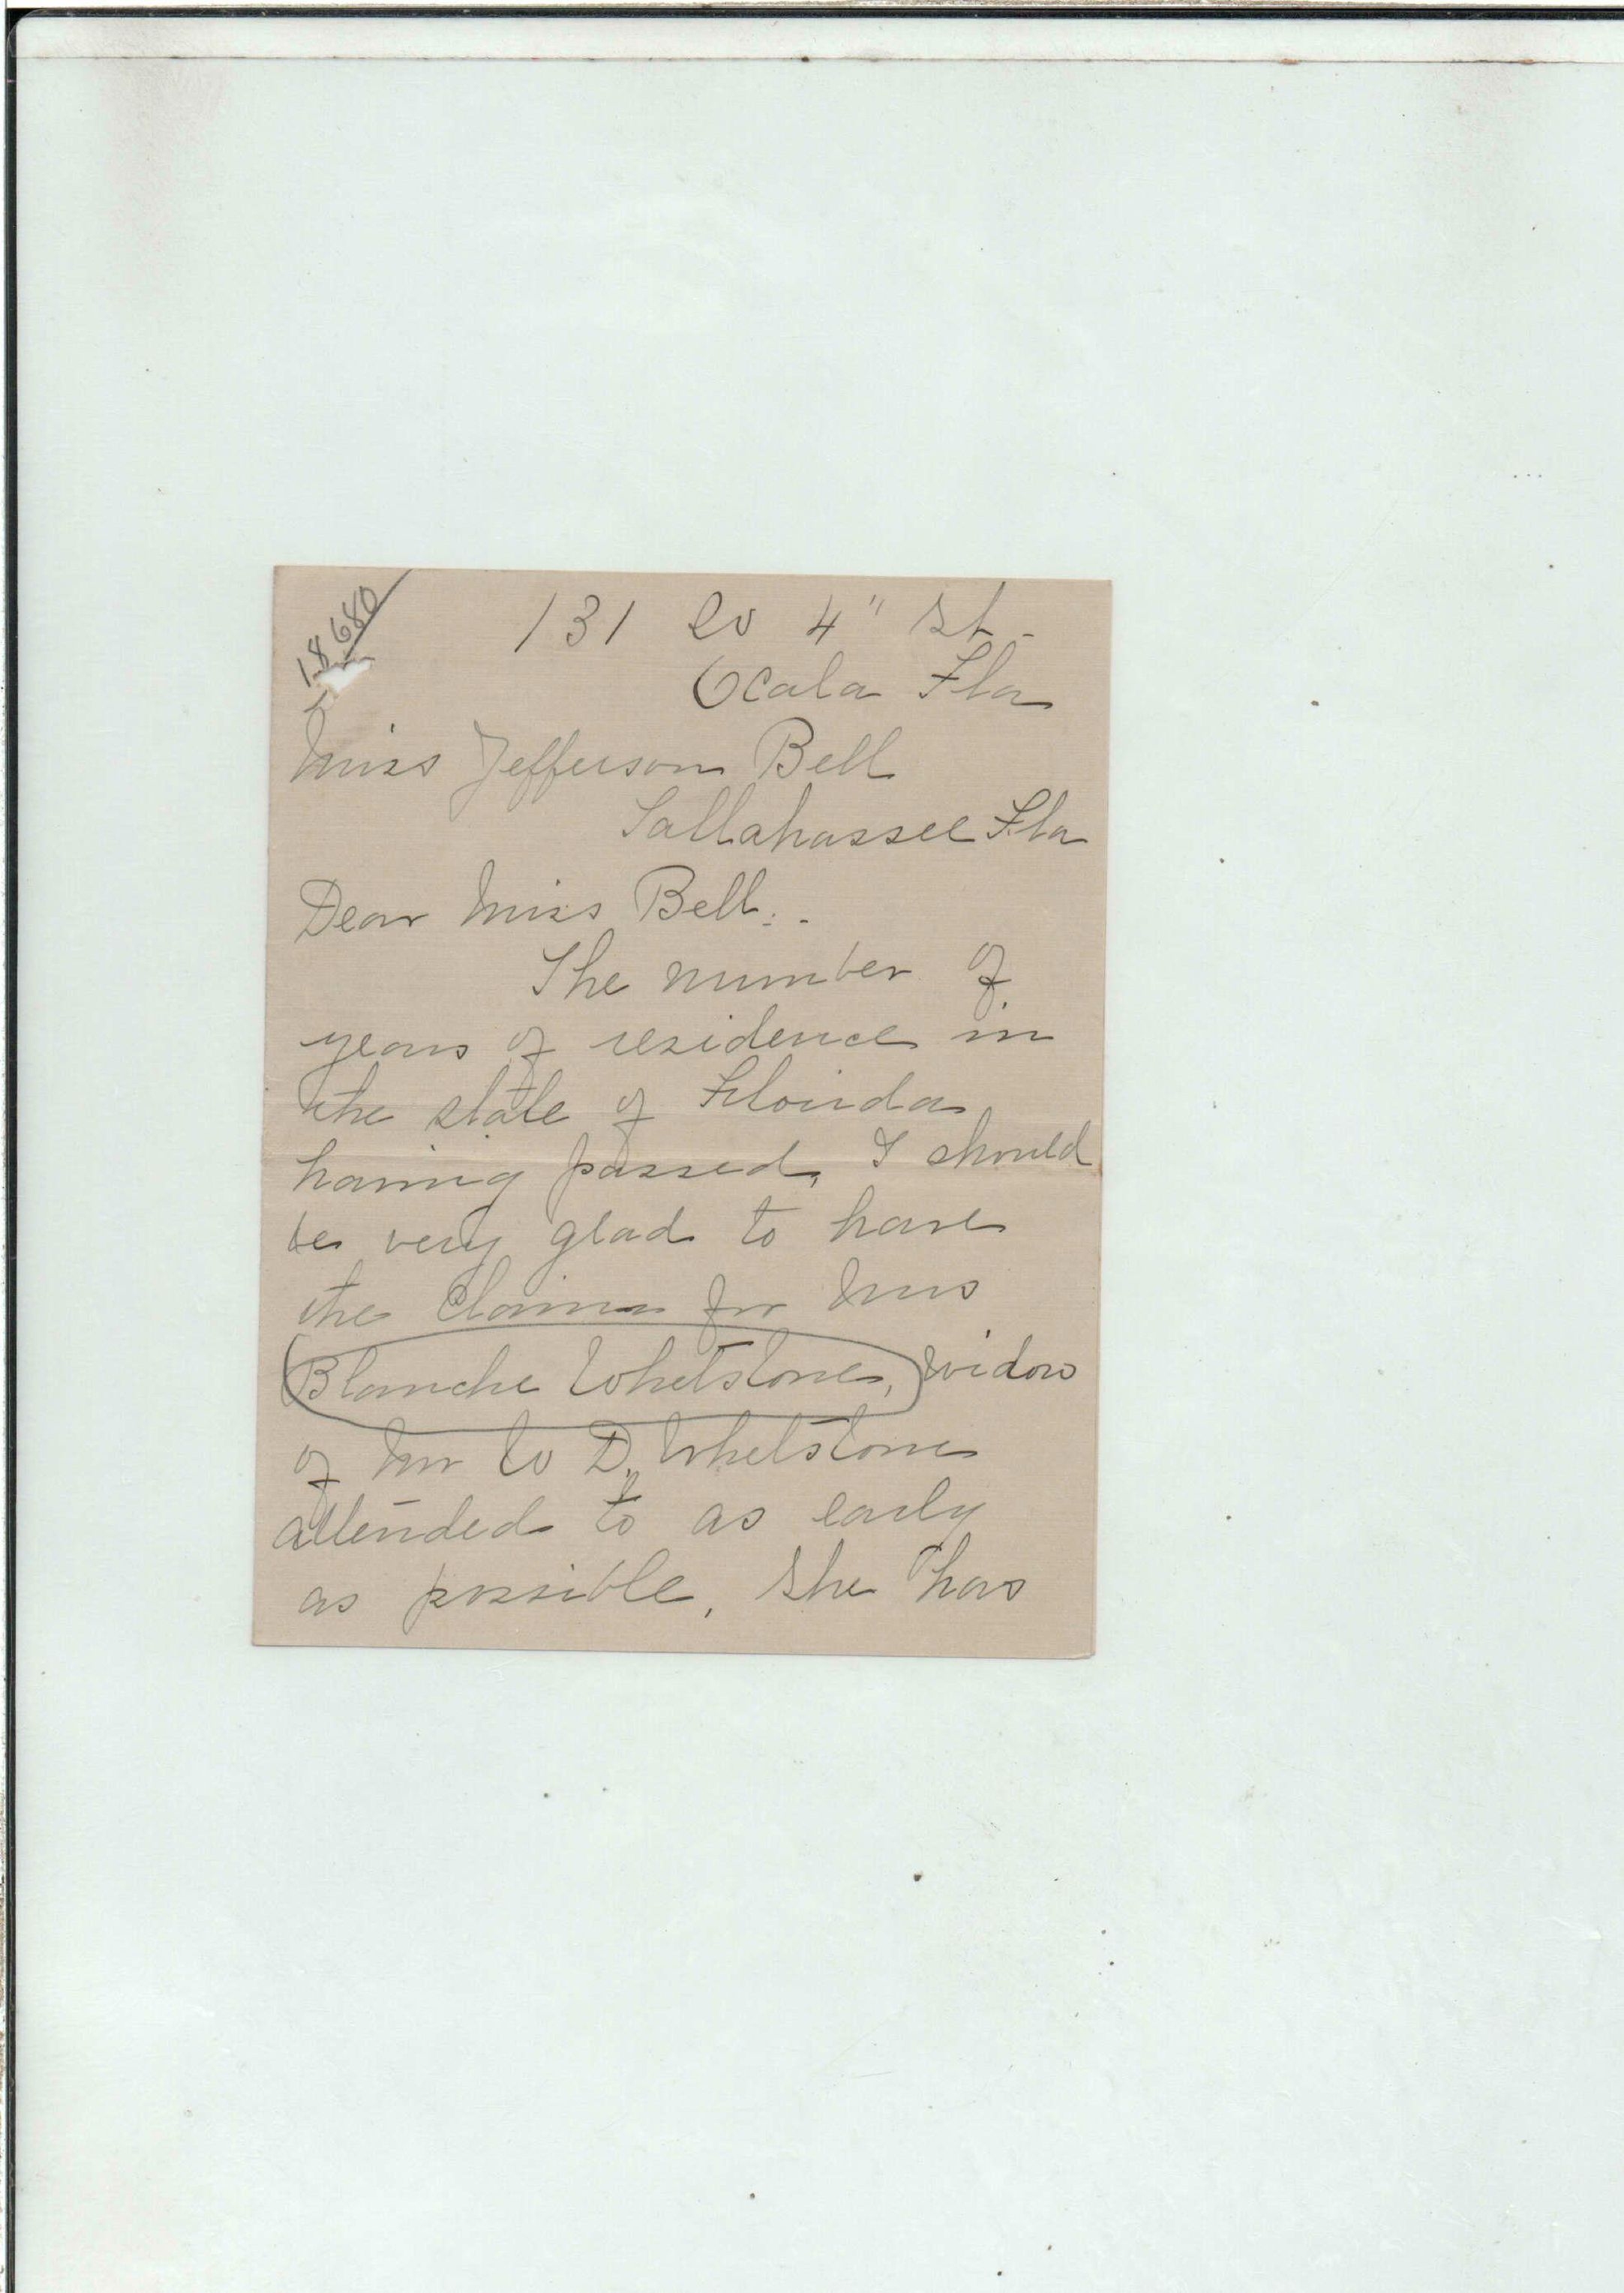 18680
131 W 4" St.
Ocala Fla
Miss Jefferson Bell
Tallahassee Fla
Dear Miss Bell:-
The number of
years of residence in
the state of Florida
having passed, I should
be very glad to have
the claim for Mrs
Blanche Whetstone, widow
of Mr W D. Whetstone
attended to as early
as possible. She has